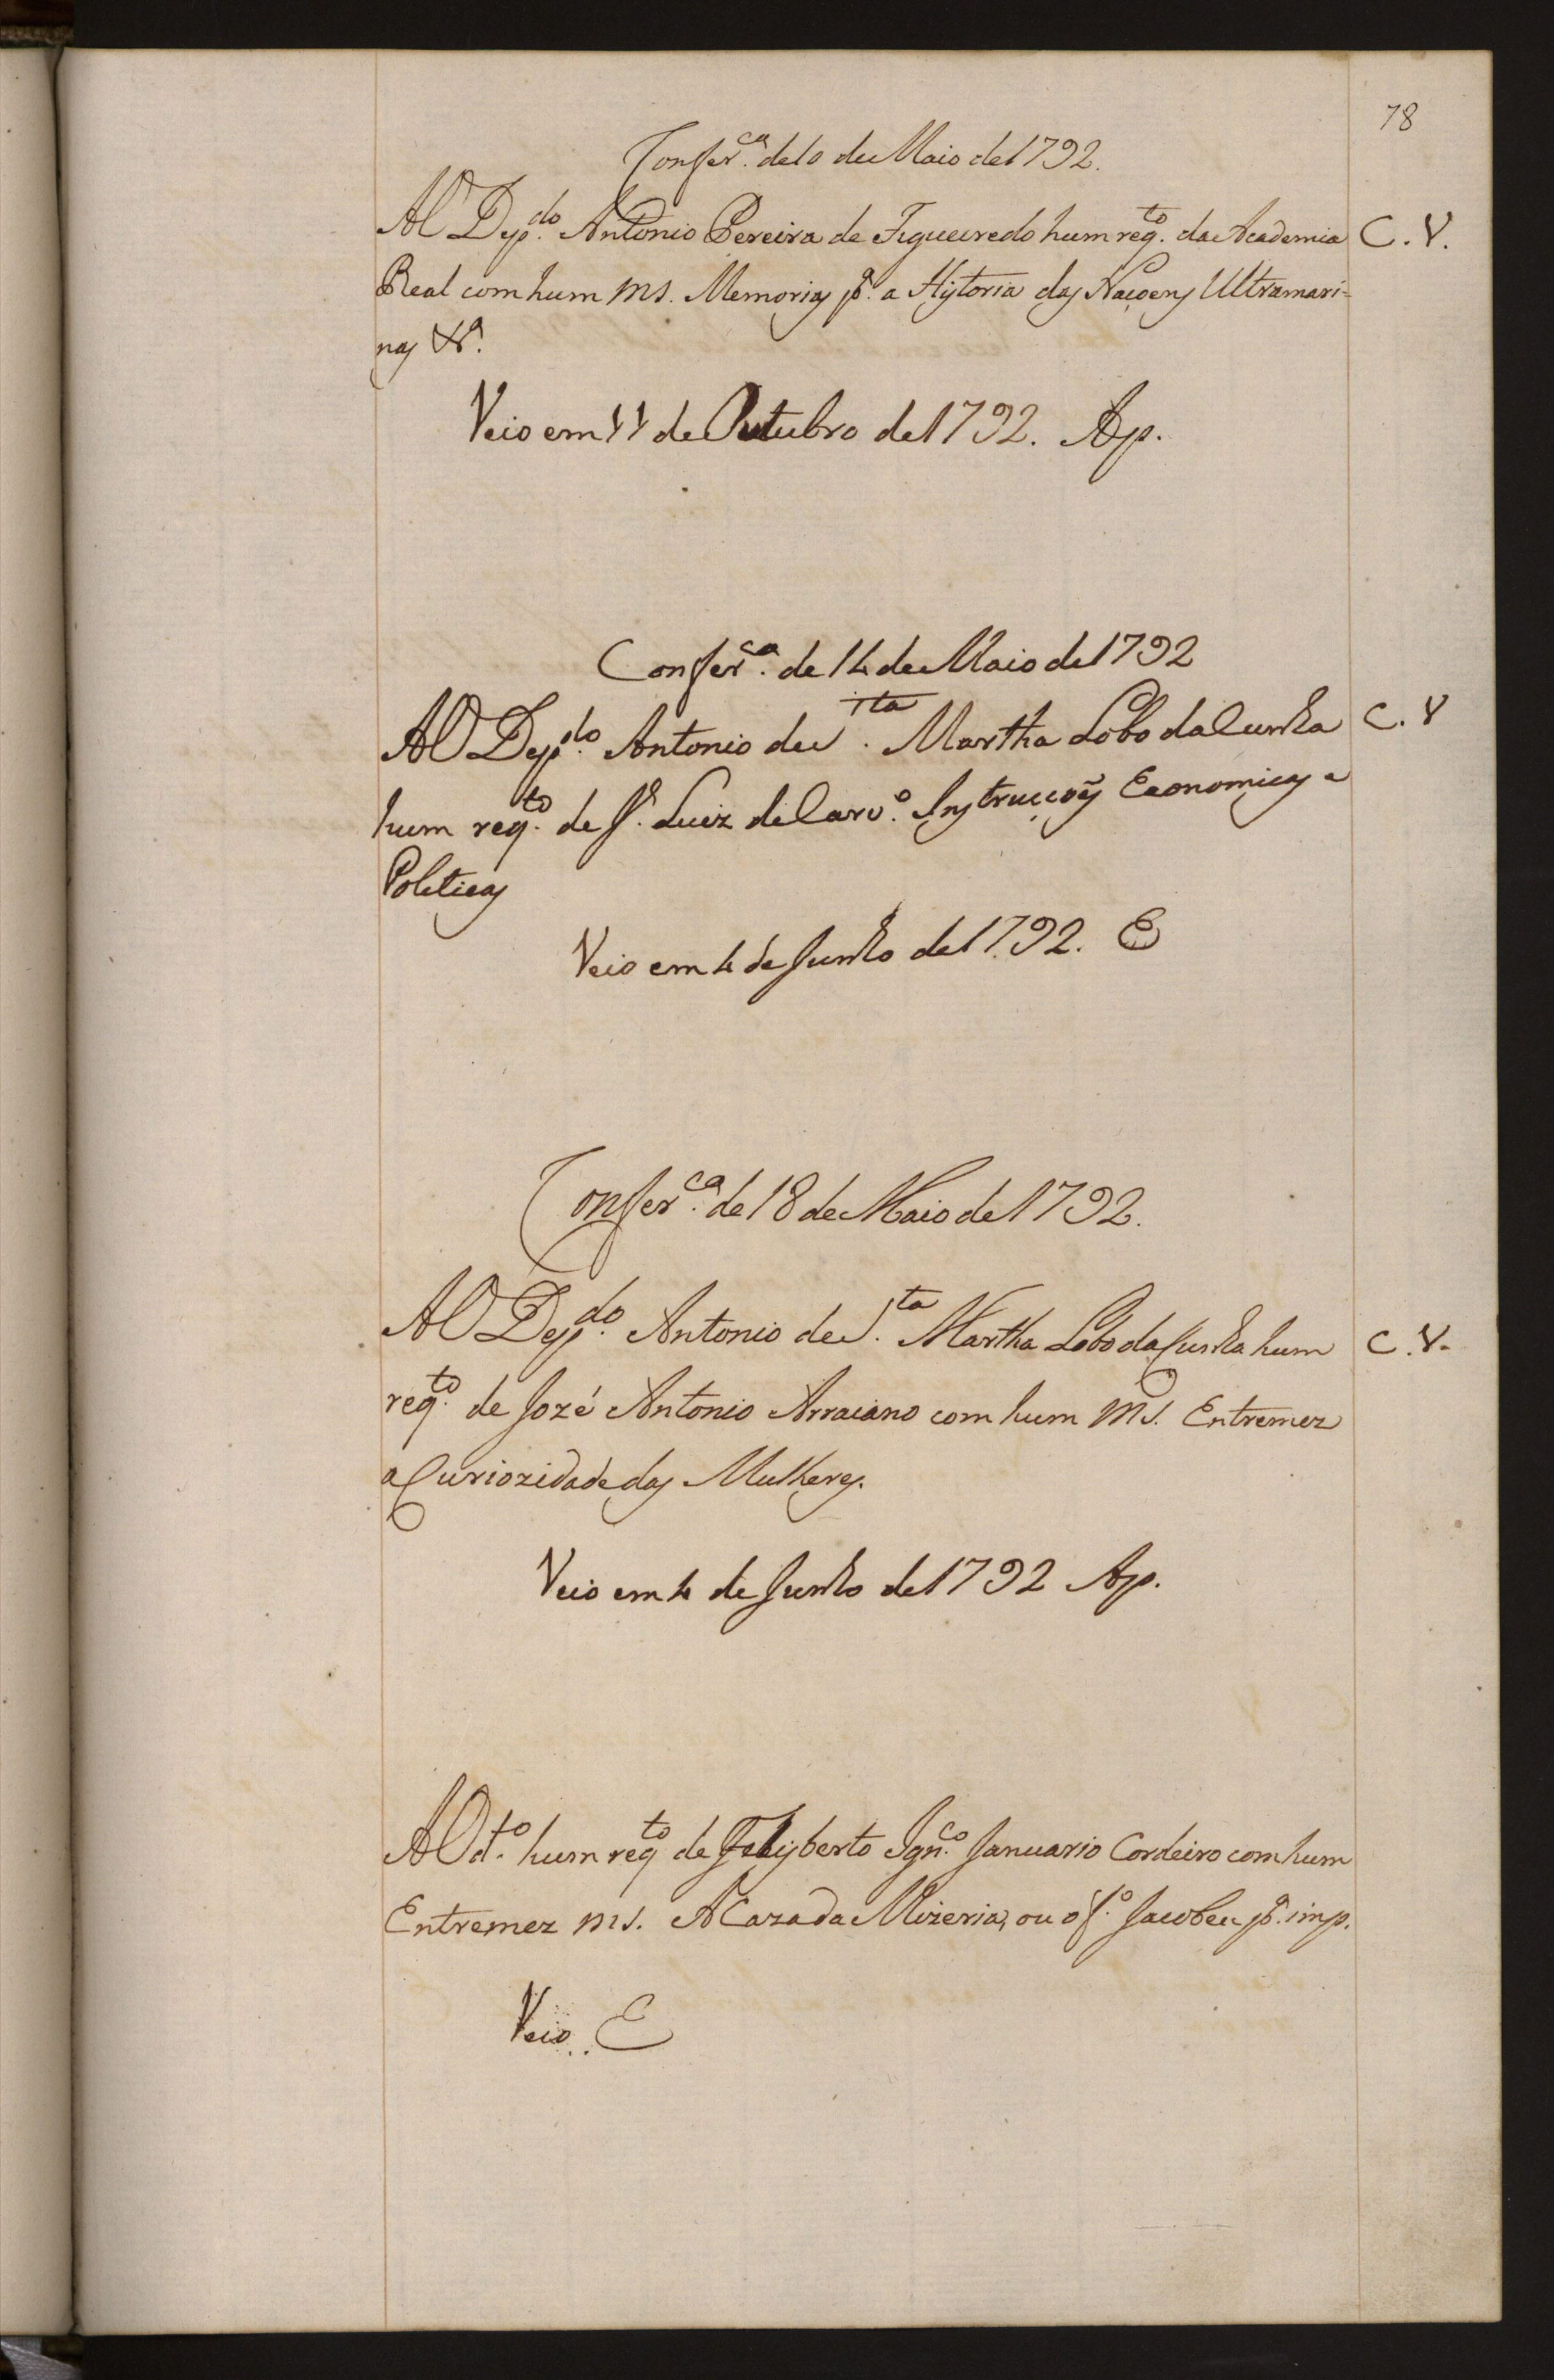 78
Confer.ca de 10 de Maio de 1792.
Ao Dep.do Antonio Pereira de Figueiredo hum req.to da Academia C. V.
Real com hum ms. Memorias p.a a Historia das Nacoens Ultramari-
nas &.a
Veio em 11 de Outubro de 1792. Ap.
Confer.ca de 14 de Maio de 1792
Ao Dep.do Antonio de S.ta Martha Lobo da Cunha C. V
hum req.to de Luiz de Carv.o Instrucções Economicas e
Politicas
Veio em 4 de Junho de 1792. E
Confer.ca de 18 de Maio de 1792.
Ao Dep.do Antonio de S.ta Martha Lobo da Cunha hum C. V.
req.to de Jozé Antonio Arraiano com hum ms. Entremez
a Curiozidade das Mulheres.
Veio em 4 de Junho de 1792 Ap.
Ao d.to hum req.to de Felisberto Ign.co Januario Cordeiro com hum
Entremez ms. A Caza da Mizeria, ou o Jacobeu p.a imp.
Veio. E